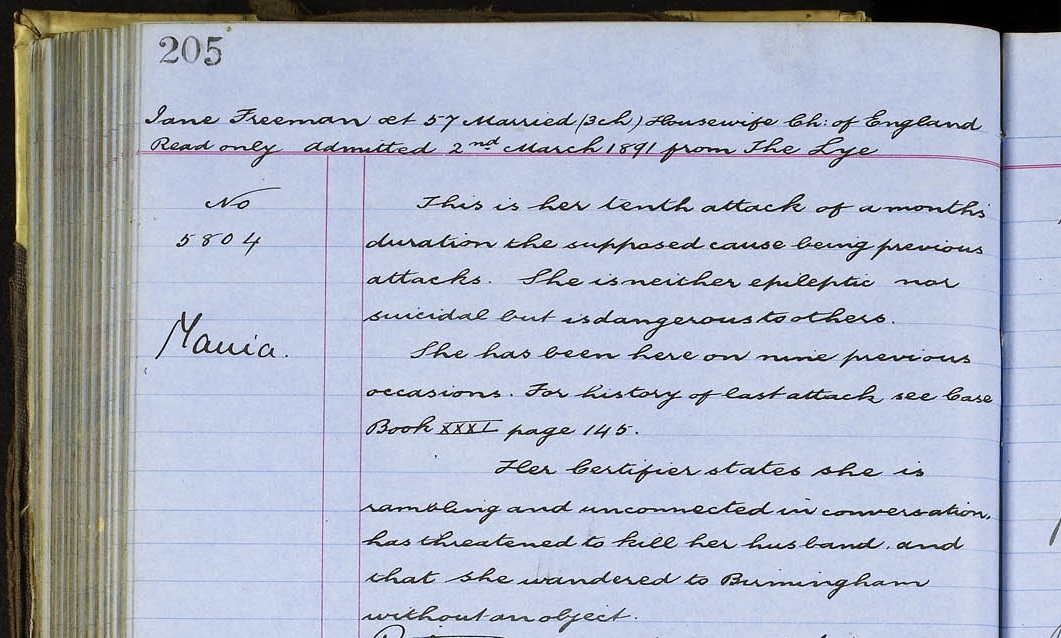 205
Jane Freeman æt 57 Married (3ch) Housewife Ch: of England
Read only admitted 2nd March 1891 from The Lye
No
5804
Mania.
This is her tenth attack of a months
duration the supposed cause being previous
attacks. She is neither epileptic nor
suicidal but is dangerous to others.
She has been here on nine previous
occasions. For history of last attack see Case
Book XXXI page 145.
Her Certifier states she is
rambling and unconnected in conversation,
has threatened to kill her husband. and
that she wandered to Birmingham
without an object.